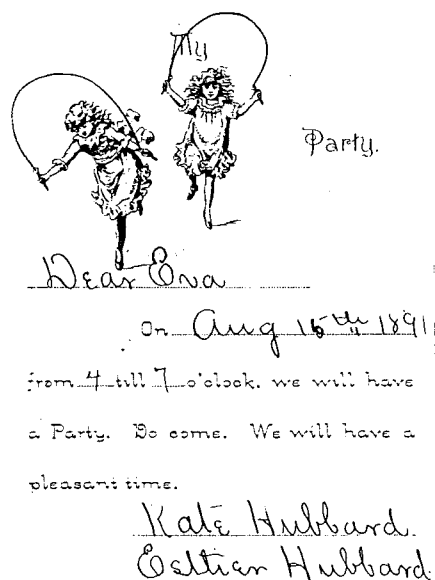 My
Party.
Dear Eva
On Aug 15th 1891
from 4 till 7 o'clock. we will have
a Party. Do come. We will have a
pleasant time.
Kate Hubbard.
Hubbard.